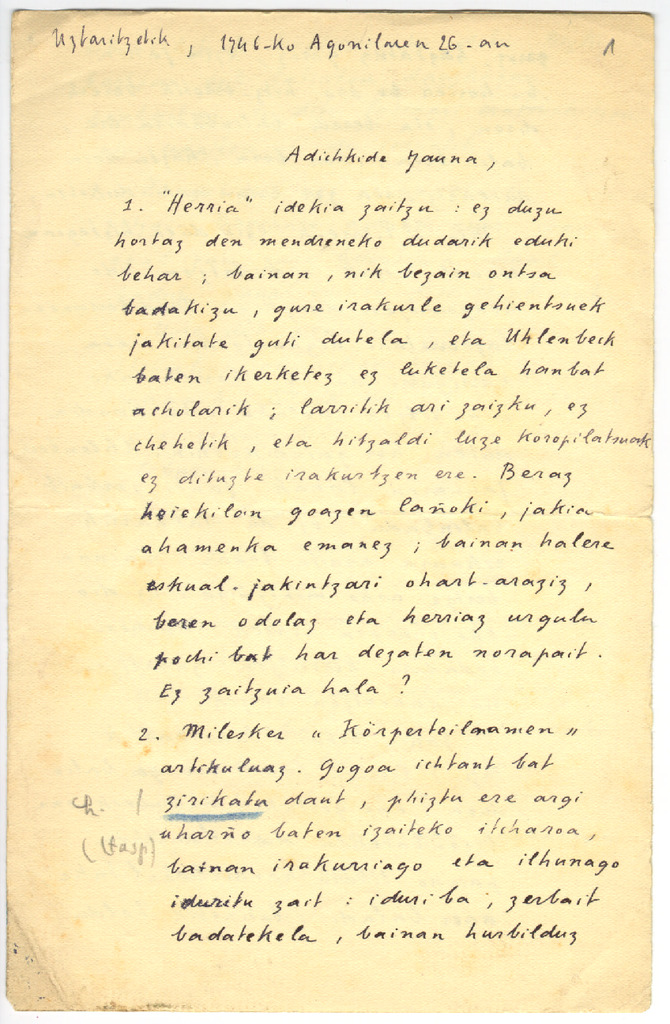 Uztaritzetik, 1946-ko Agonilaren 26-an
1
Adichkide Jauna,
1. "Herria" idekia zaitzu : ez duzu
hortaz den mendreneko dudarik eduki
behar ; bainan, nik bezain ontsa
badakizu, gure irakurle gehientsuek
jakitate guti dutela, eta Uhlenbeck
baten ikerketez ez luketela hanbat
acholarik ; larritik ari zaizku, ez
chehetik, eta hitzaldi luze koropilatsuak
ez dituzte irakurtzen ere. Beraz
heiekilan goazen lañoki, jakia
ahamenka emanez ; bainan halere
eskual-jakintzari ohart-araziz,
beren odolaz eta herriaz urgulu
pochi bat har dezaten norapait.
Ez zaitzuia hala ?
2. Milesker " Körperteilnamen "
artikuluaz. Gogoa ichtant bat
zirikatu daut, phiztu ere argi
ch. /
uharño baten izaiteko itcharoa,
(Hasp)
bainan irakurriago eta ilhunago
iduritu zait : iduri ba, zerbait
badatekela, bainan hurbilduz